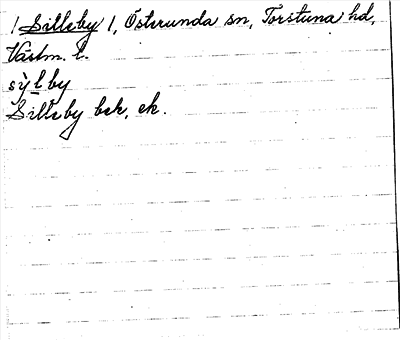 / Silleby /, Österunda sn, Torstuna hd,
Västm. l.
sỳlby
Silleby bek, ek.